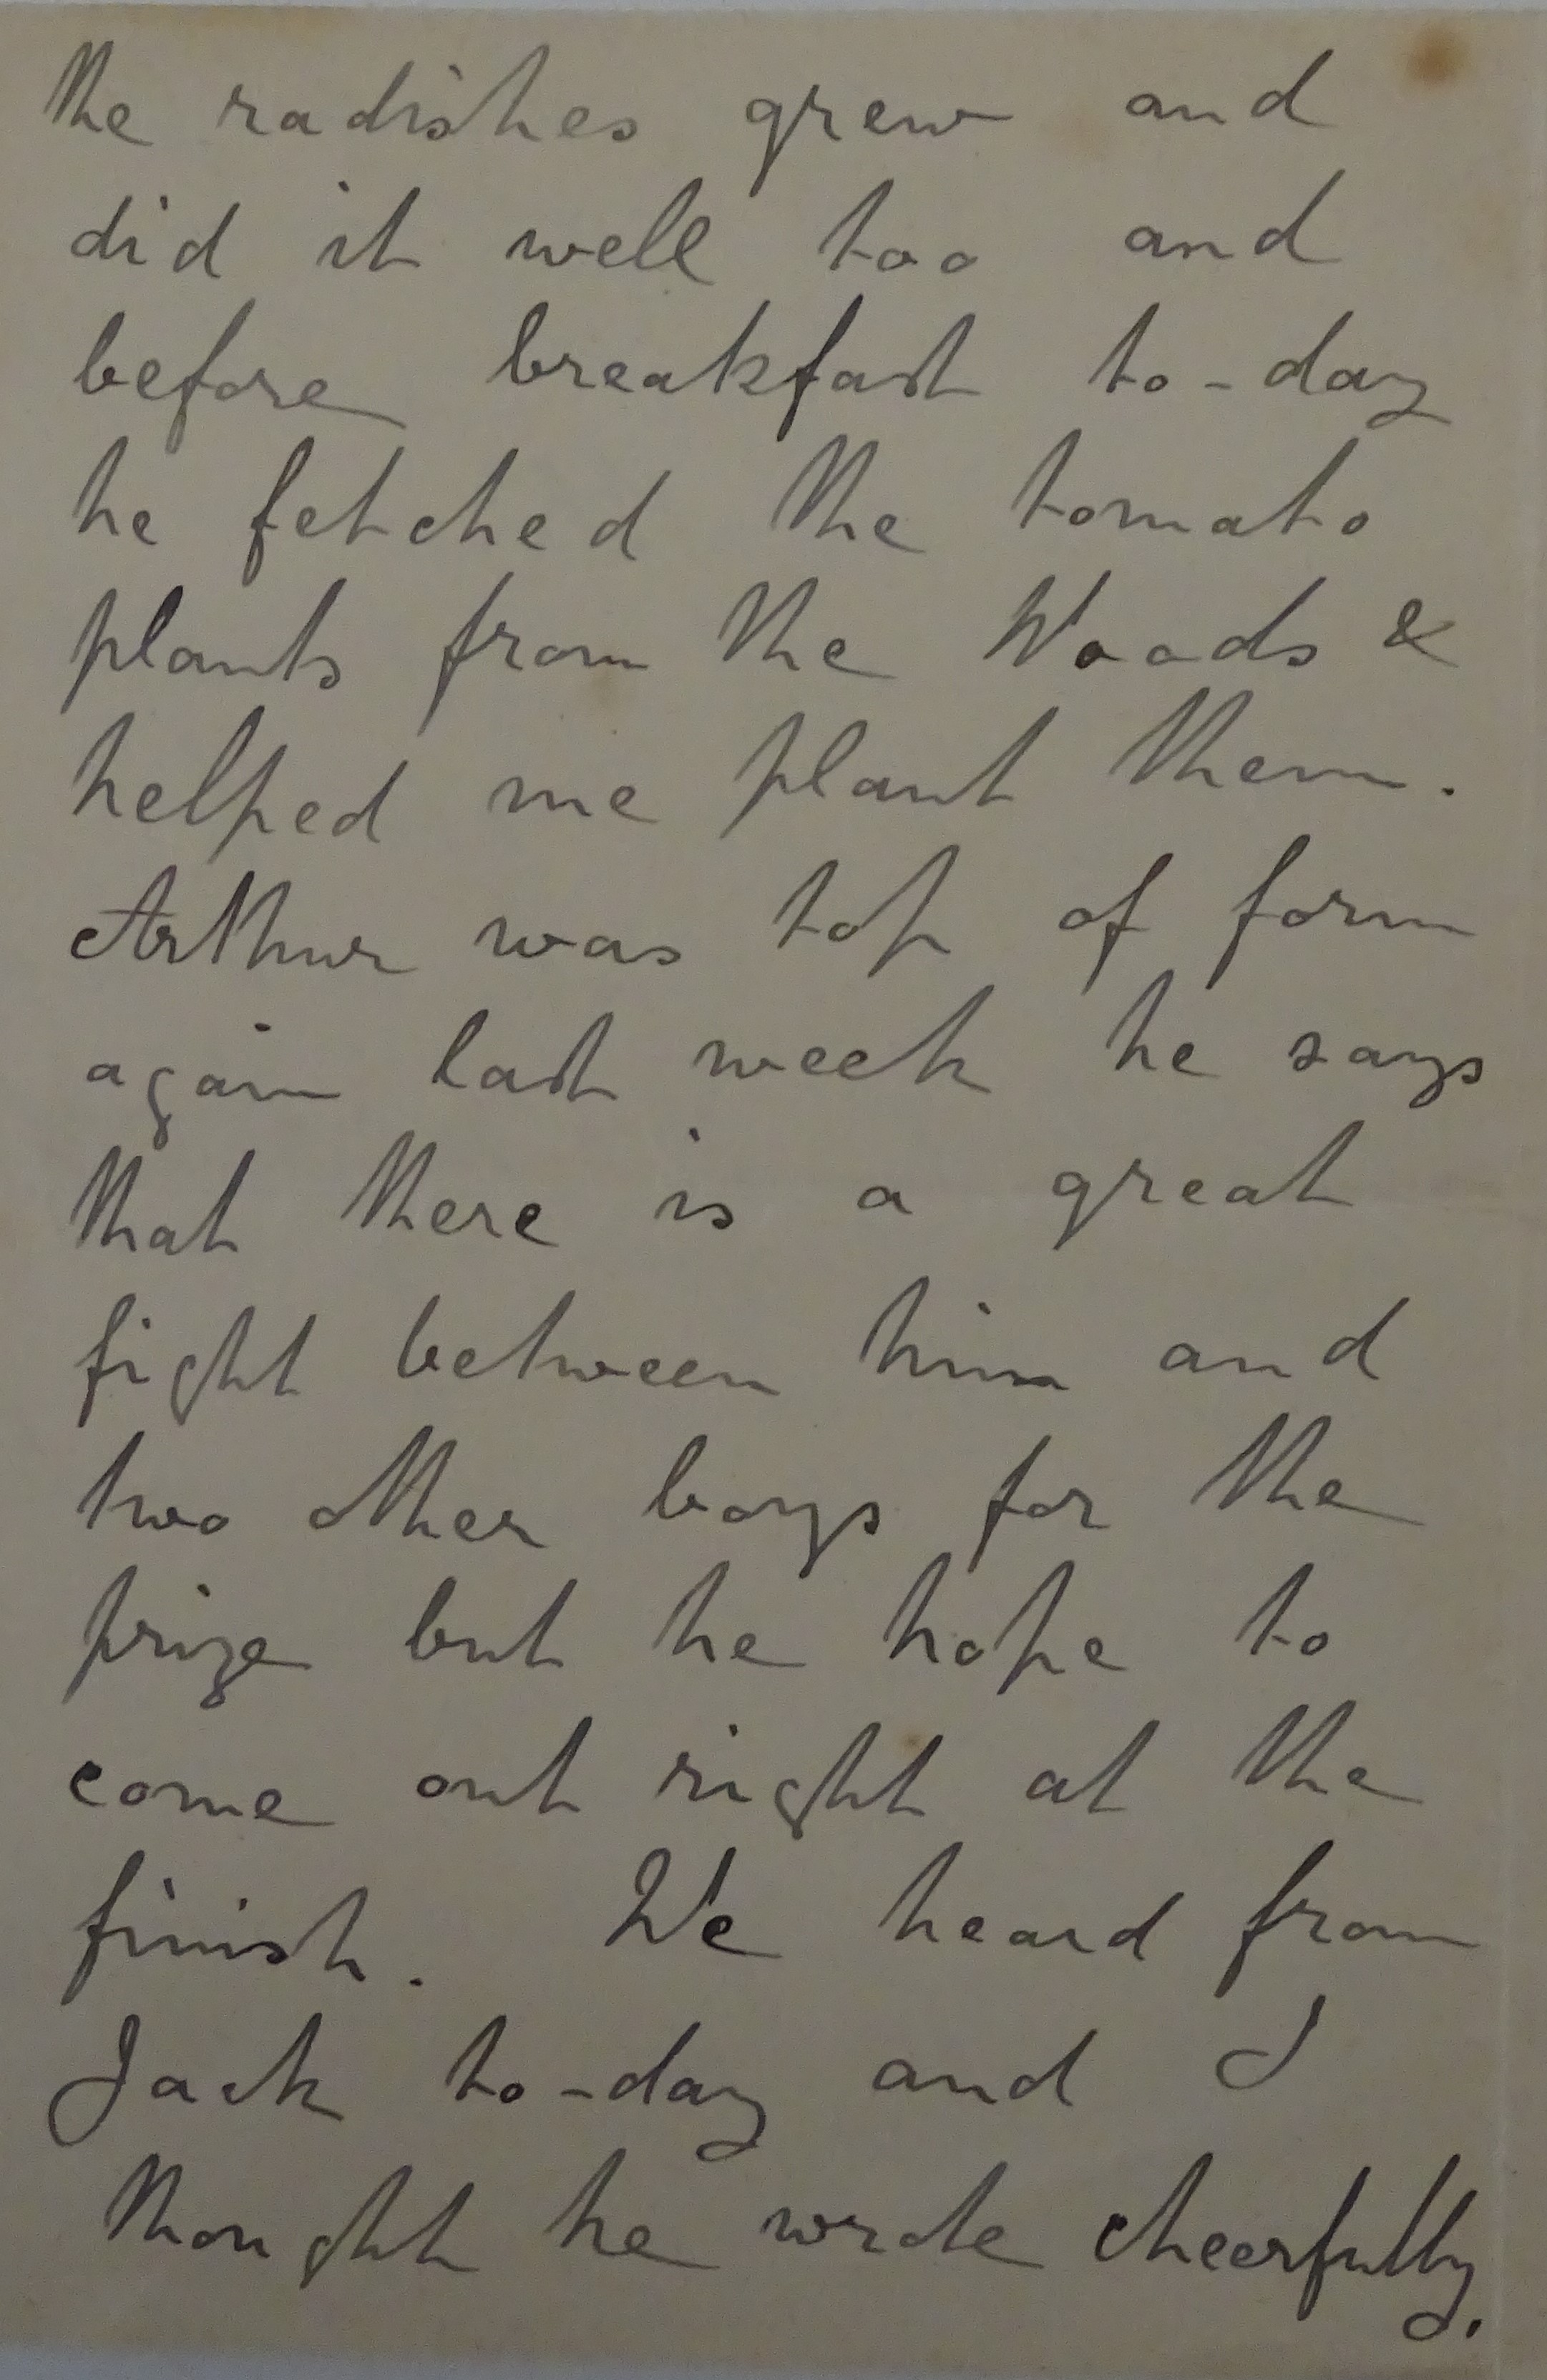 the radishes grew and
did it well too and
before breakfast to-day
he fetched the tomato
plants from the Woods &
helped me plant them.
Arthur was top of form
again last week he says
that there is a great
fight between him and
two other boys for the
prize but he hope to
come out right at the
finish. We heard from
Jack to-day and I
thought he wrote cheerfully.